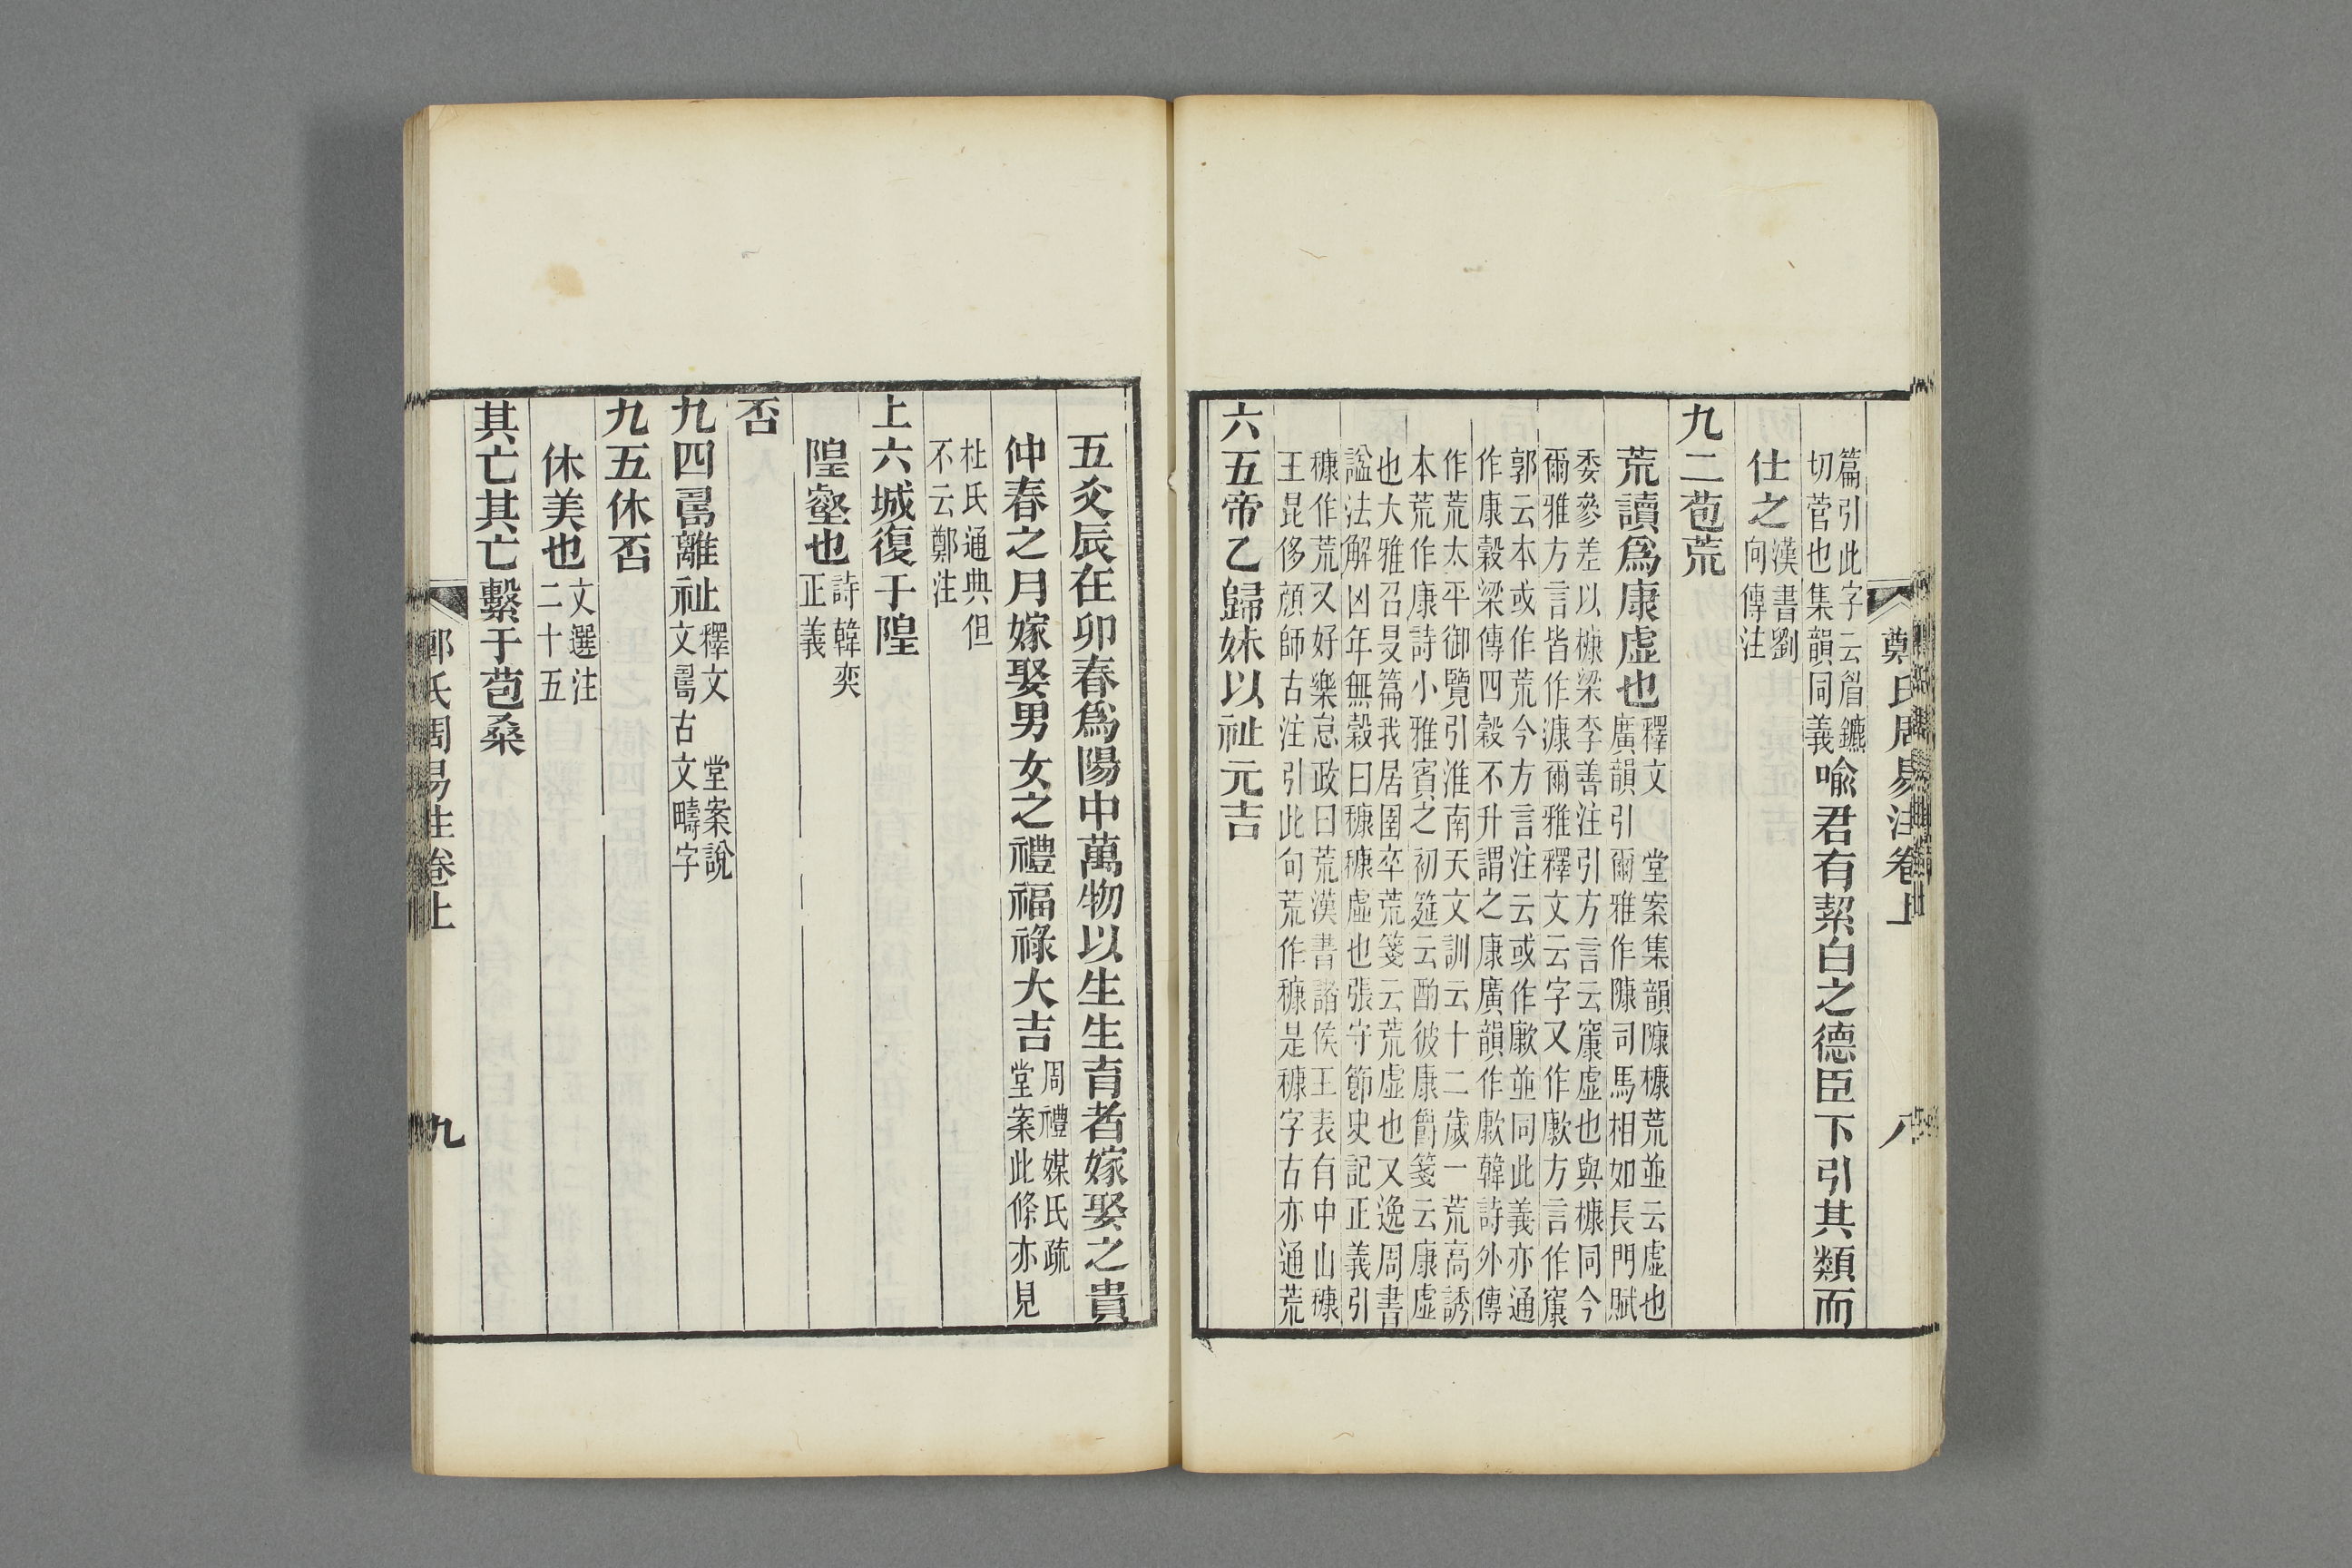 鄭氏周易注卷上 八
篇引此字云䈞鑣
切菅也集韻同義喩君有絜白之德臣下引其類而
仕之漢書劉
向傳注
九二苞荒
荒讀爲康虛也釋文 堂案集韻㝩㯑荒並云虛也
廣韻引爾雅作㝩司馬相如長門賦
委參差以㯑梁李善注引方言云㝩虛也與㯑同今
爾雅方言皆作漮爾雅釋文云字又作歑方言作㝩
郭云本或作荒今方言注云或作歑並同此義亦通
作康穀梁傳四穀不升謂之康廣韻作歑韓詩外傳
作荒太平御覽引淮南天文訓云十二歲一荒高誘
本荒作康詩小雅賓之初筵云酌彼康爵箋云康虛
也大雅召旻篇我居圉卒荒箋云荒虛也又逸周書
諡法解凶年無穀曰穅穅虛也張守節史記正義引
穅作荒又好樂怠政曰荒漢書諸侯王表有中山穅
王昆侈顔師古注引此句荒作穅是穅字古亦通荒
六五帝乙歸妹以祉元吉
五爻辰在卯春爲陽中萬物以生生育者嫁娶之貴
仲春之月嫁娶男女之禮福祿大吉周禮媒氏疏
堂案此條亦見
杜氏通典但
不云鄭注
上六城復于隍
隍壑也詩韓奕
正義
否
九四𠷎離祉釋文 堂案說
文𠷎古文疇字
九五休否
休美也文選注
二十五
其亡其亡繫于苞桑
氏周易注卷上 九